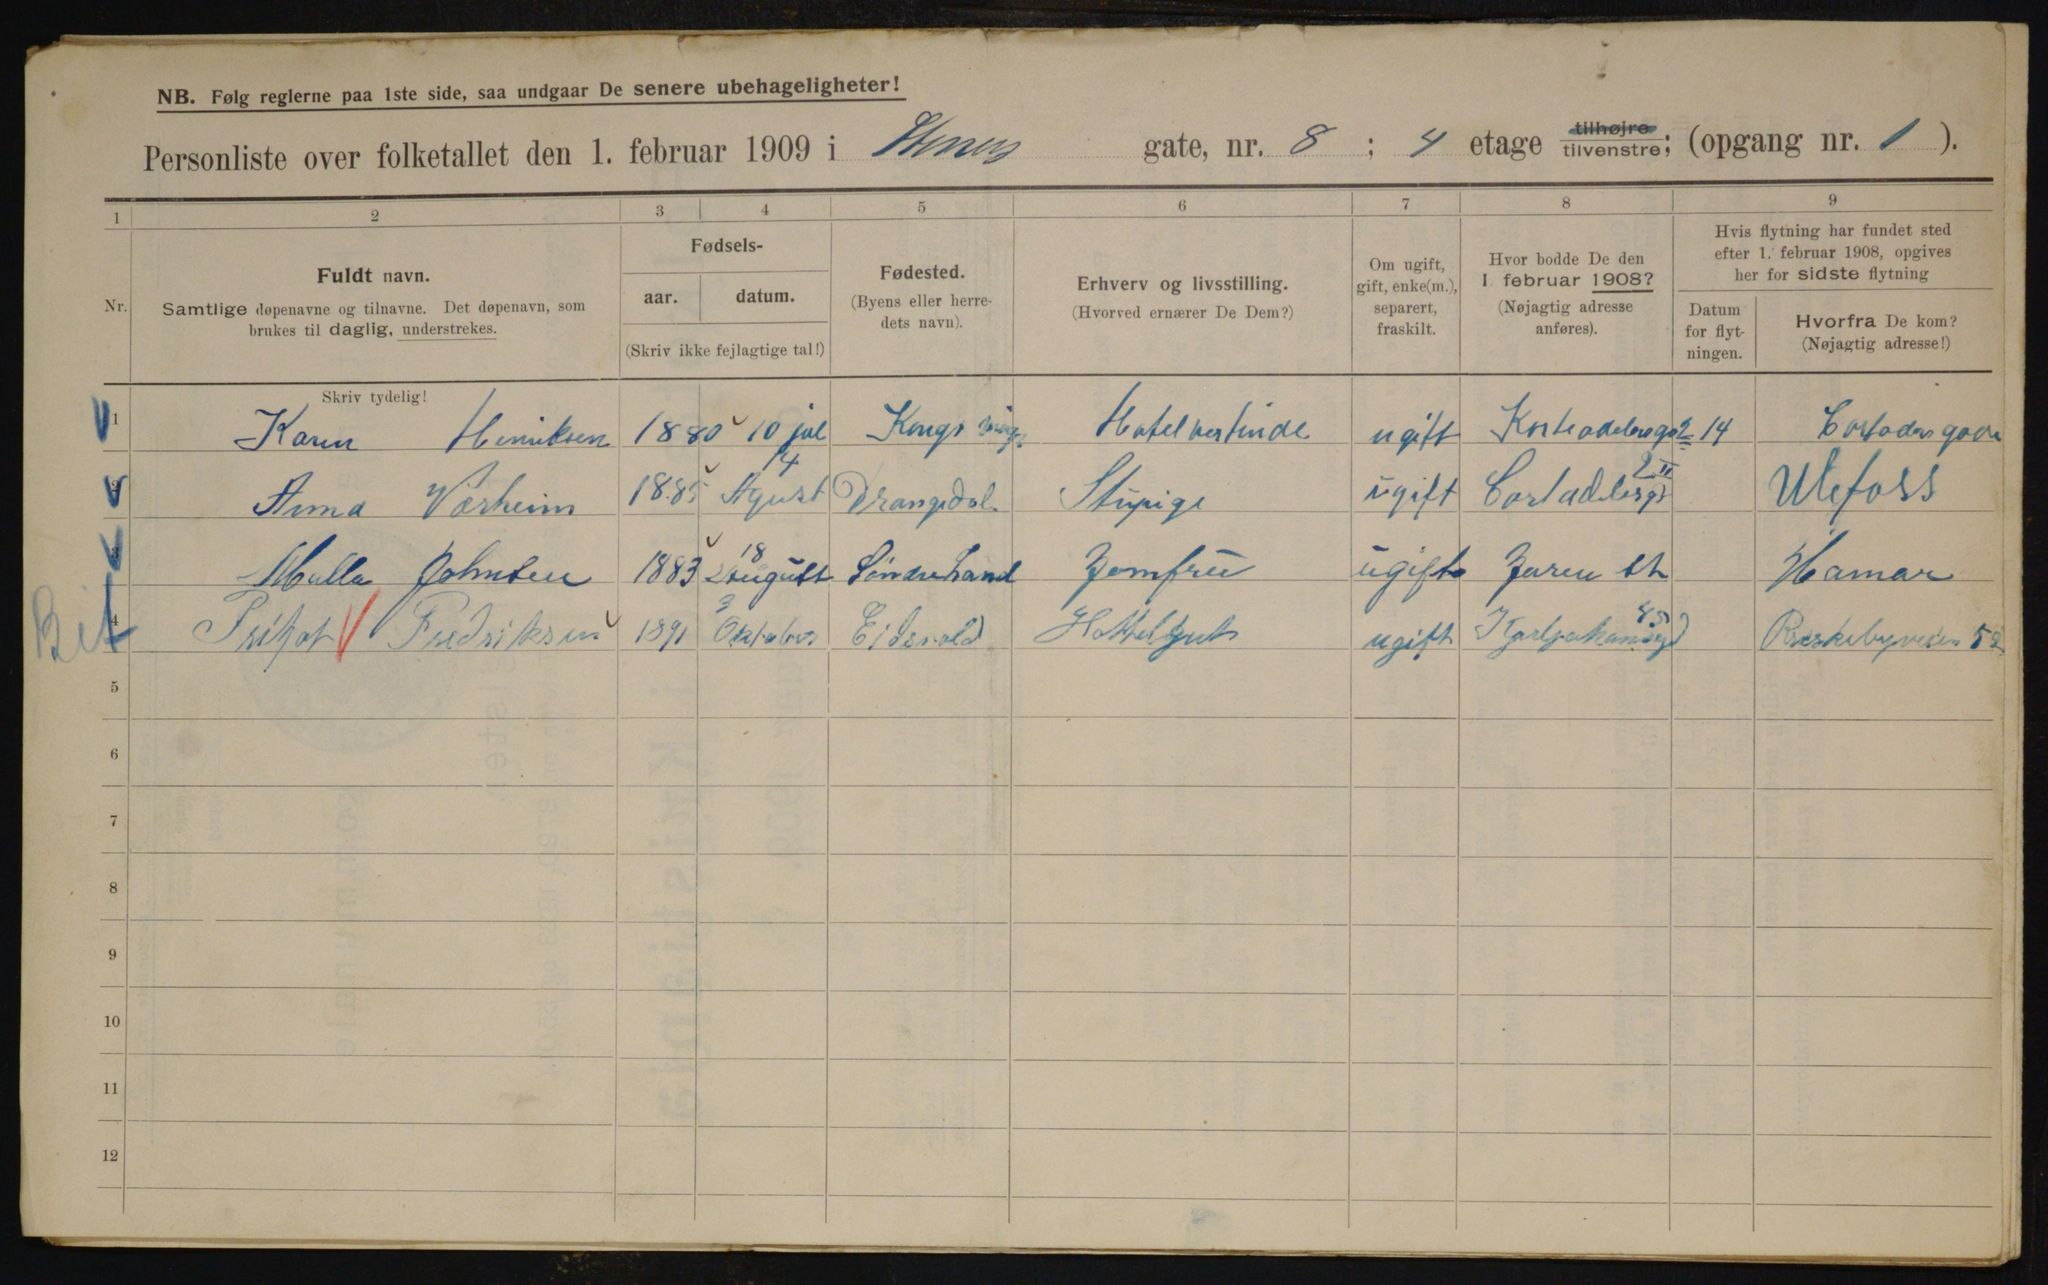 NB. Følg reglerne paa 1ste side, saa undgaar De senere ubehageligheter!
Personliste over folketallet den 1. februar 1909 i gate, nr. 8 ; 4 etage tilhøjre tilvenstre; (opgang nr. 1 ).
1 2 3 4 5 6 7 8 9
Nr.
Fuldt navn.
Samtlige døpenavne og tilnavne. Det døpenavn, som
brukes til daglig, understrekes.
Fødsels-
aar. datum.
(Skriv ikke fejlagtige tal!)
Fødested.
(Byens eller herre-
dets navn).
Erhverv og livsstilling.
(Hvorved ernærer De Dem?)
Om ugift,
gift, enke(m.),
separert,
fraskilt.
Hvor bodde De den
1 februar 1908?
(Nøjagtig adresse
anføres).
Hvis flytning har fundet sted
efter 1. februar 1908, opgives
her for sidste flytning
Datum
for flyt-
ningen.
Hvorfra De kom?
(Nøjagtig adresse!)
Skriv tydelig!
1 Karen Henriksen 1880 10 jul Kongsvinger Hotelvertinde ugift 14
2 Anna Værheim 1885 4 Agust Drangedal Stupige ugift Cortadelersgt 2 II Ulefoss
3 Mulla Johnsen 1883 18 August Søndre Land Jomfru ugift Jaren st Hamar
4 Fredriksen 1891 3 Oktober Eidsvold Hottelgut ugift
5
6
7
8
9
10
11
12